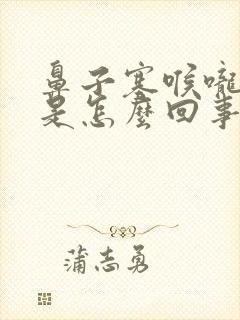 鼻子塞喉嚨
是怎麼回事
蒲志勇